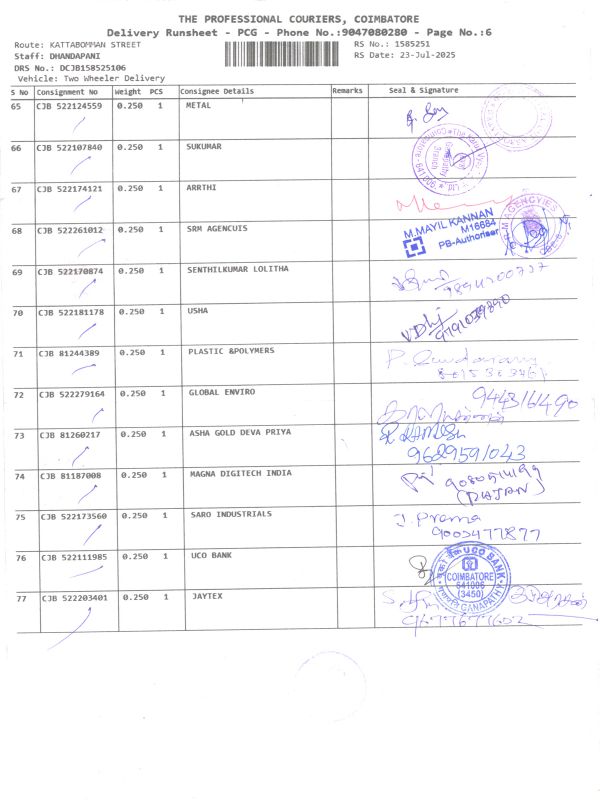 THE PROFESSIONAL COURIERS, COIMBATORE
Delivery Runsheet - PCG - Phone No.:9047080280 - Page No.:6
Route: KATTABOMMAN STREET RS No.: 1585251
Staff: DHANDAPANI RS Date: 23-Jul-2025
DRS No.: DCJB158525106
Vehicle: Two Wheeler Delivery
S No Consignment No Weight PCS Consignee Details Remarks Seal & Signature
65 CJB 522124559 0.250 1 METAL
66 CJB 522107840 0.250 1 SUKUMAR
67 CJB 522174121 0.250 1 ARRTHI
68 CJB 522261012 0.250 1 SRM AGENCUIS
M.MAYIL KANNAN
M16684
PB-Authoriser
AGENCYIES
69 CJB 522170874 0.250 1 SENTHILKUMAR LOLITHA
70 CJB 522181178 0.250 1 USHA
9791039890
71 CJB 81244389 0.250 1 PLASTIC &POLYMERS
72 CJB 522279164 0.250 1 GLOBAL ENVIRO
9443161490
73 CJB 81260217 0.250 1 ASHA GOLD DEVA PRIYA
RAMESH
9629591043
74 CJB 81187008 0.250 1 MAGNA DIGITECH INDIA
(RAJAN)
75 CJB 522173560 0.250 1 SARO INDUSTRIALS
J. Prema
9003477877
76 CJB 522111985 0.250 1 UCO BANK
UCO BANK
COIMBATORE
641006
(3450)
GANAPATHY
77 CJB 522203401 0.250 1 JAYTEX